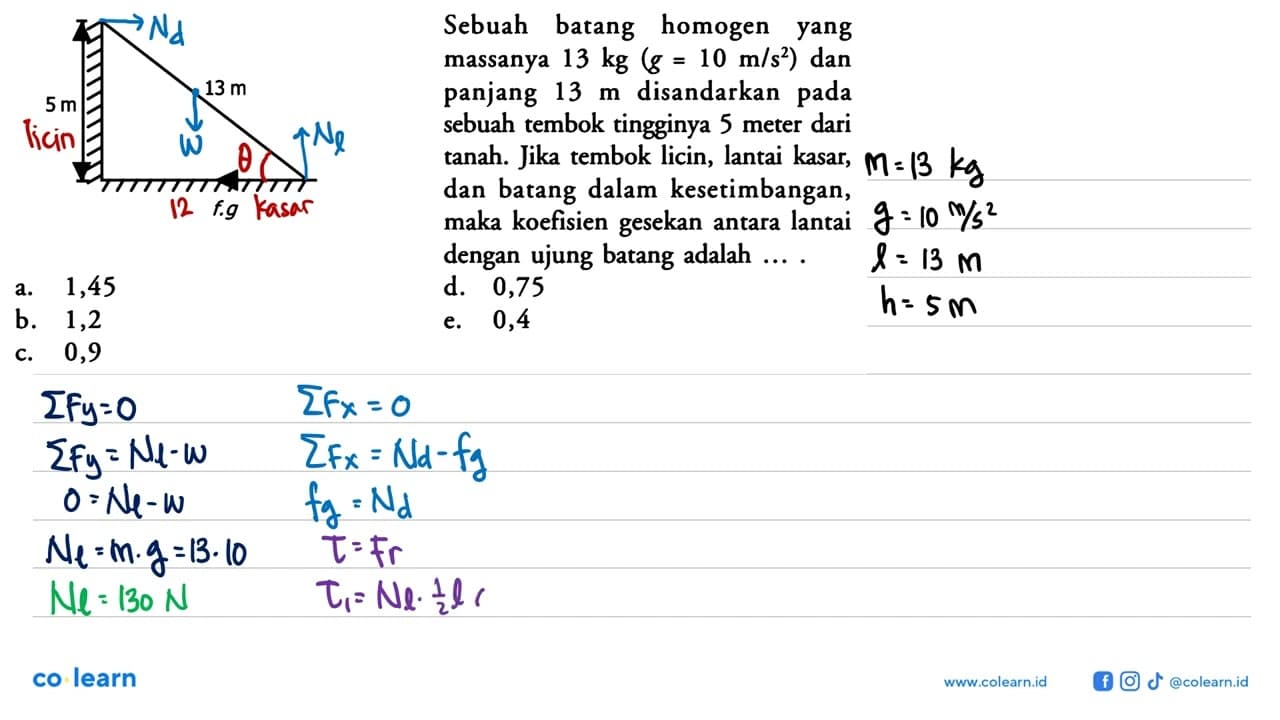 Nd
13 m
5 m
licin
W
θ
Nl
12 f.g kasar
Sebuah batang homogen yang
massanya 13 kg (g = 10 m/s²) dan
panjang 13 m disandarkan pada
sebuah tembok tingginya 5 meter dari
tanah. Jika tembok licin, lantai kasar,
dan batang dalam kesetimbangan,
maka koefisien gesekan antara lantai
dengan ujung batang adalah ... .
a. 1,45
b. 1,2
c. 0,9
d. 0,75
e. 0,4
m = 13 kg
g = 10 m/s²
l = 13 m
h = 5 m
ΣFy = 0
ΣFy = Nl - w
0 = Nl - w
Nl = m . g = 13 . 10
Nl = 130 N
ΣFx = 0
ΣFx = Nd - fg
fg = Nd
τ = Fr
τ₁ = Nl . ½ l (
co learn
www.colearn.id
@colearn.id